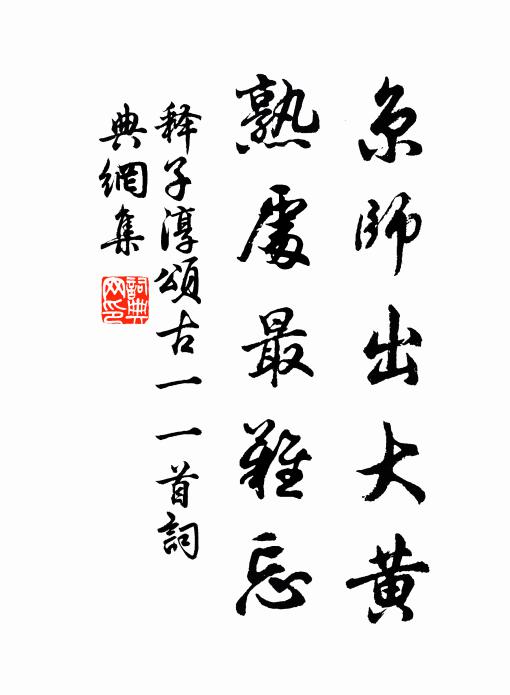 京師出大黄
熟處最難忘
释子淳頌古一一首詞
典網集
詞典
网印